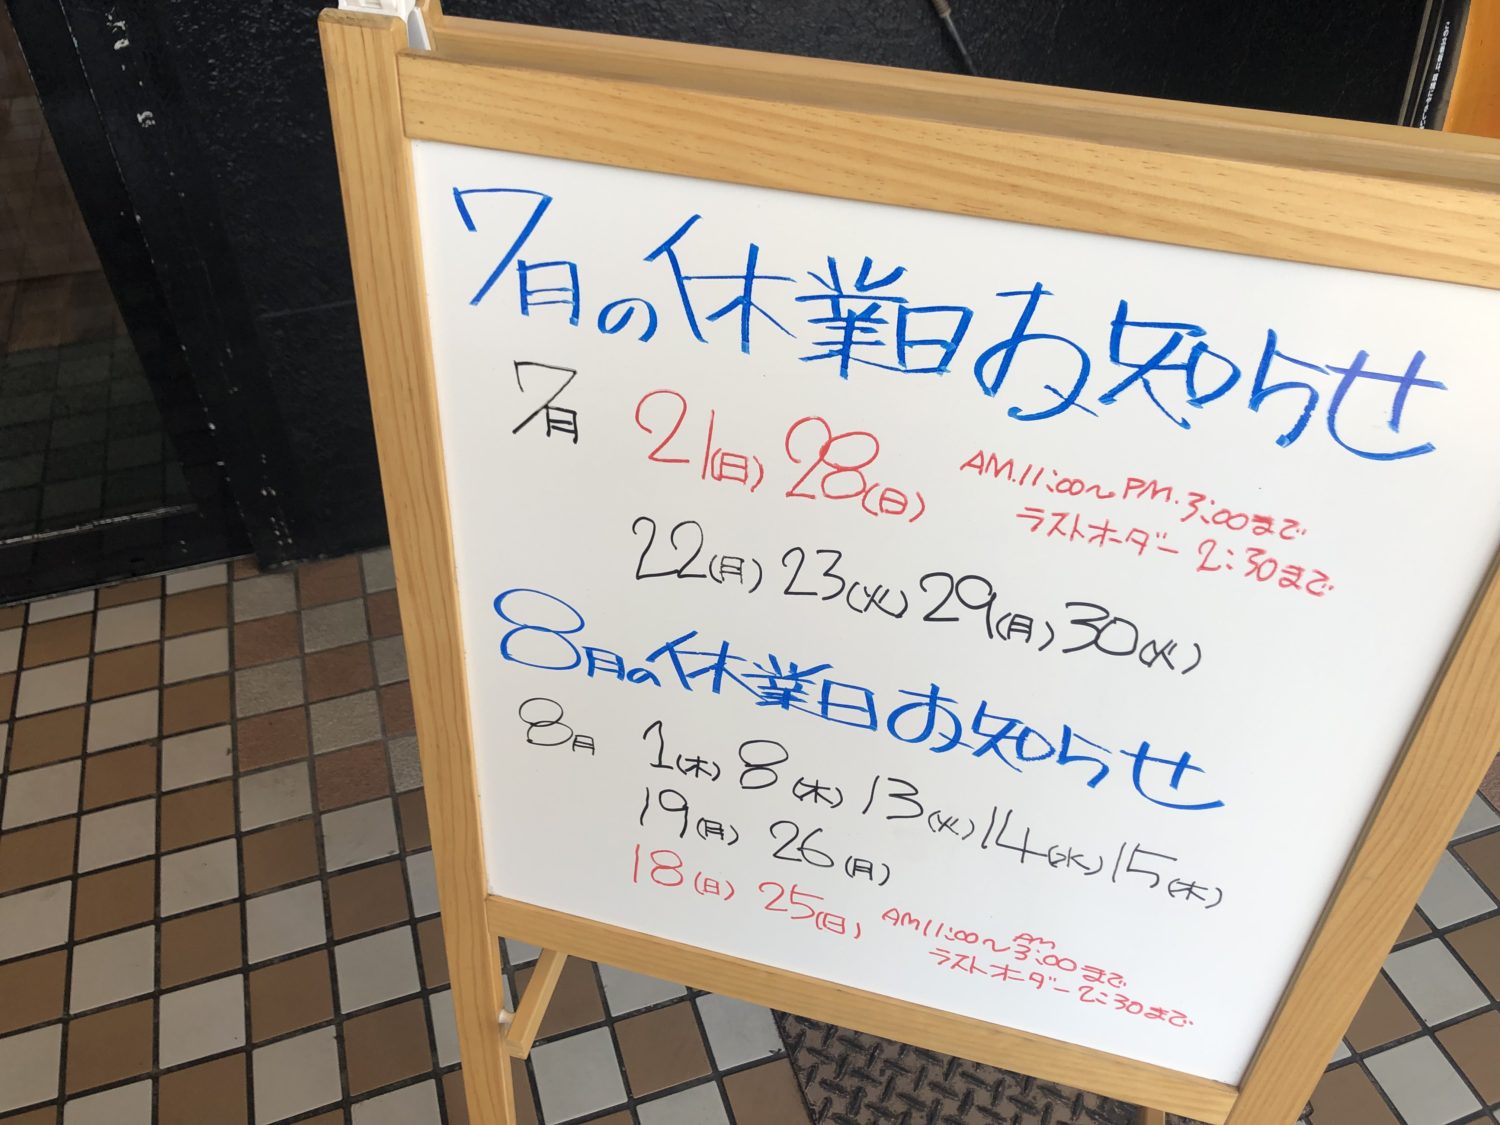 7月の休業日お知らせ
7月 21(日) 28(日) AM.11:00〜PM.3:00まで
ラストオーダー 2:30まで
22(月) 23(火) 29(月) 30(火)
8月の休業日お知らせ
8月 1(木) 8(木) 13(火) 14(水) 15(木)
19(月) 26(月)
18(日) 25(日) AM11:00〜AM3:00まで
ラストオーダー 2:30まで